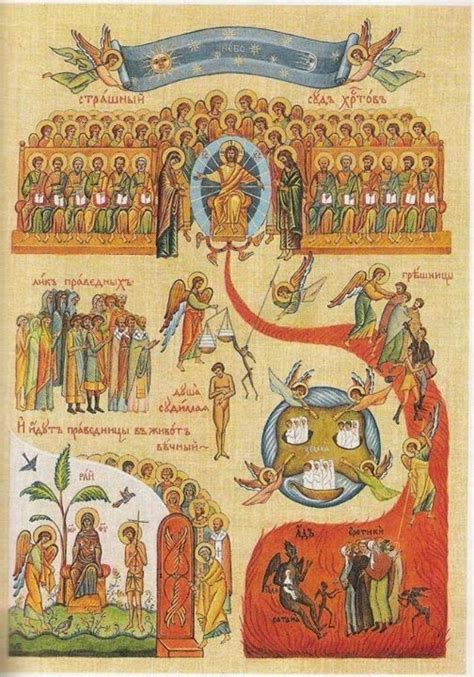 НЕБО
СТРАШНЫЙ СУДЪ ХРТОВЪ
ЛИКЪ ПРАВЕДНЫХЪ
ГРѢШНИЦЫ
ДУША
СУДИМАЯ
И ИДУТЪ ПРАВЕДНИЦЫ ВЪ ЖИВОТЪ
ВѢЧНЫЙ
ЗЕМЛЯ
РАЙ
АДЪ
ЕРЕТИКИ
САТАНА